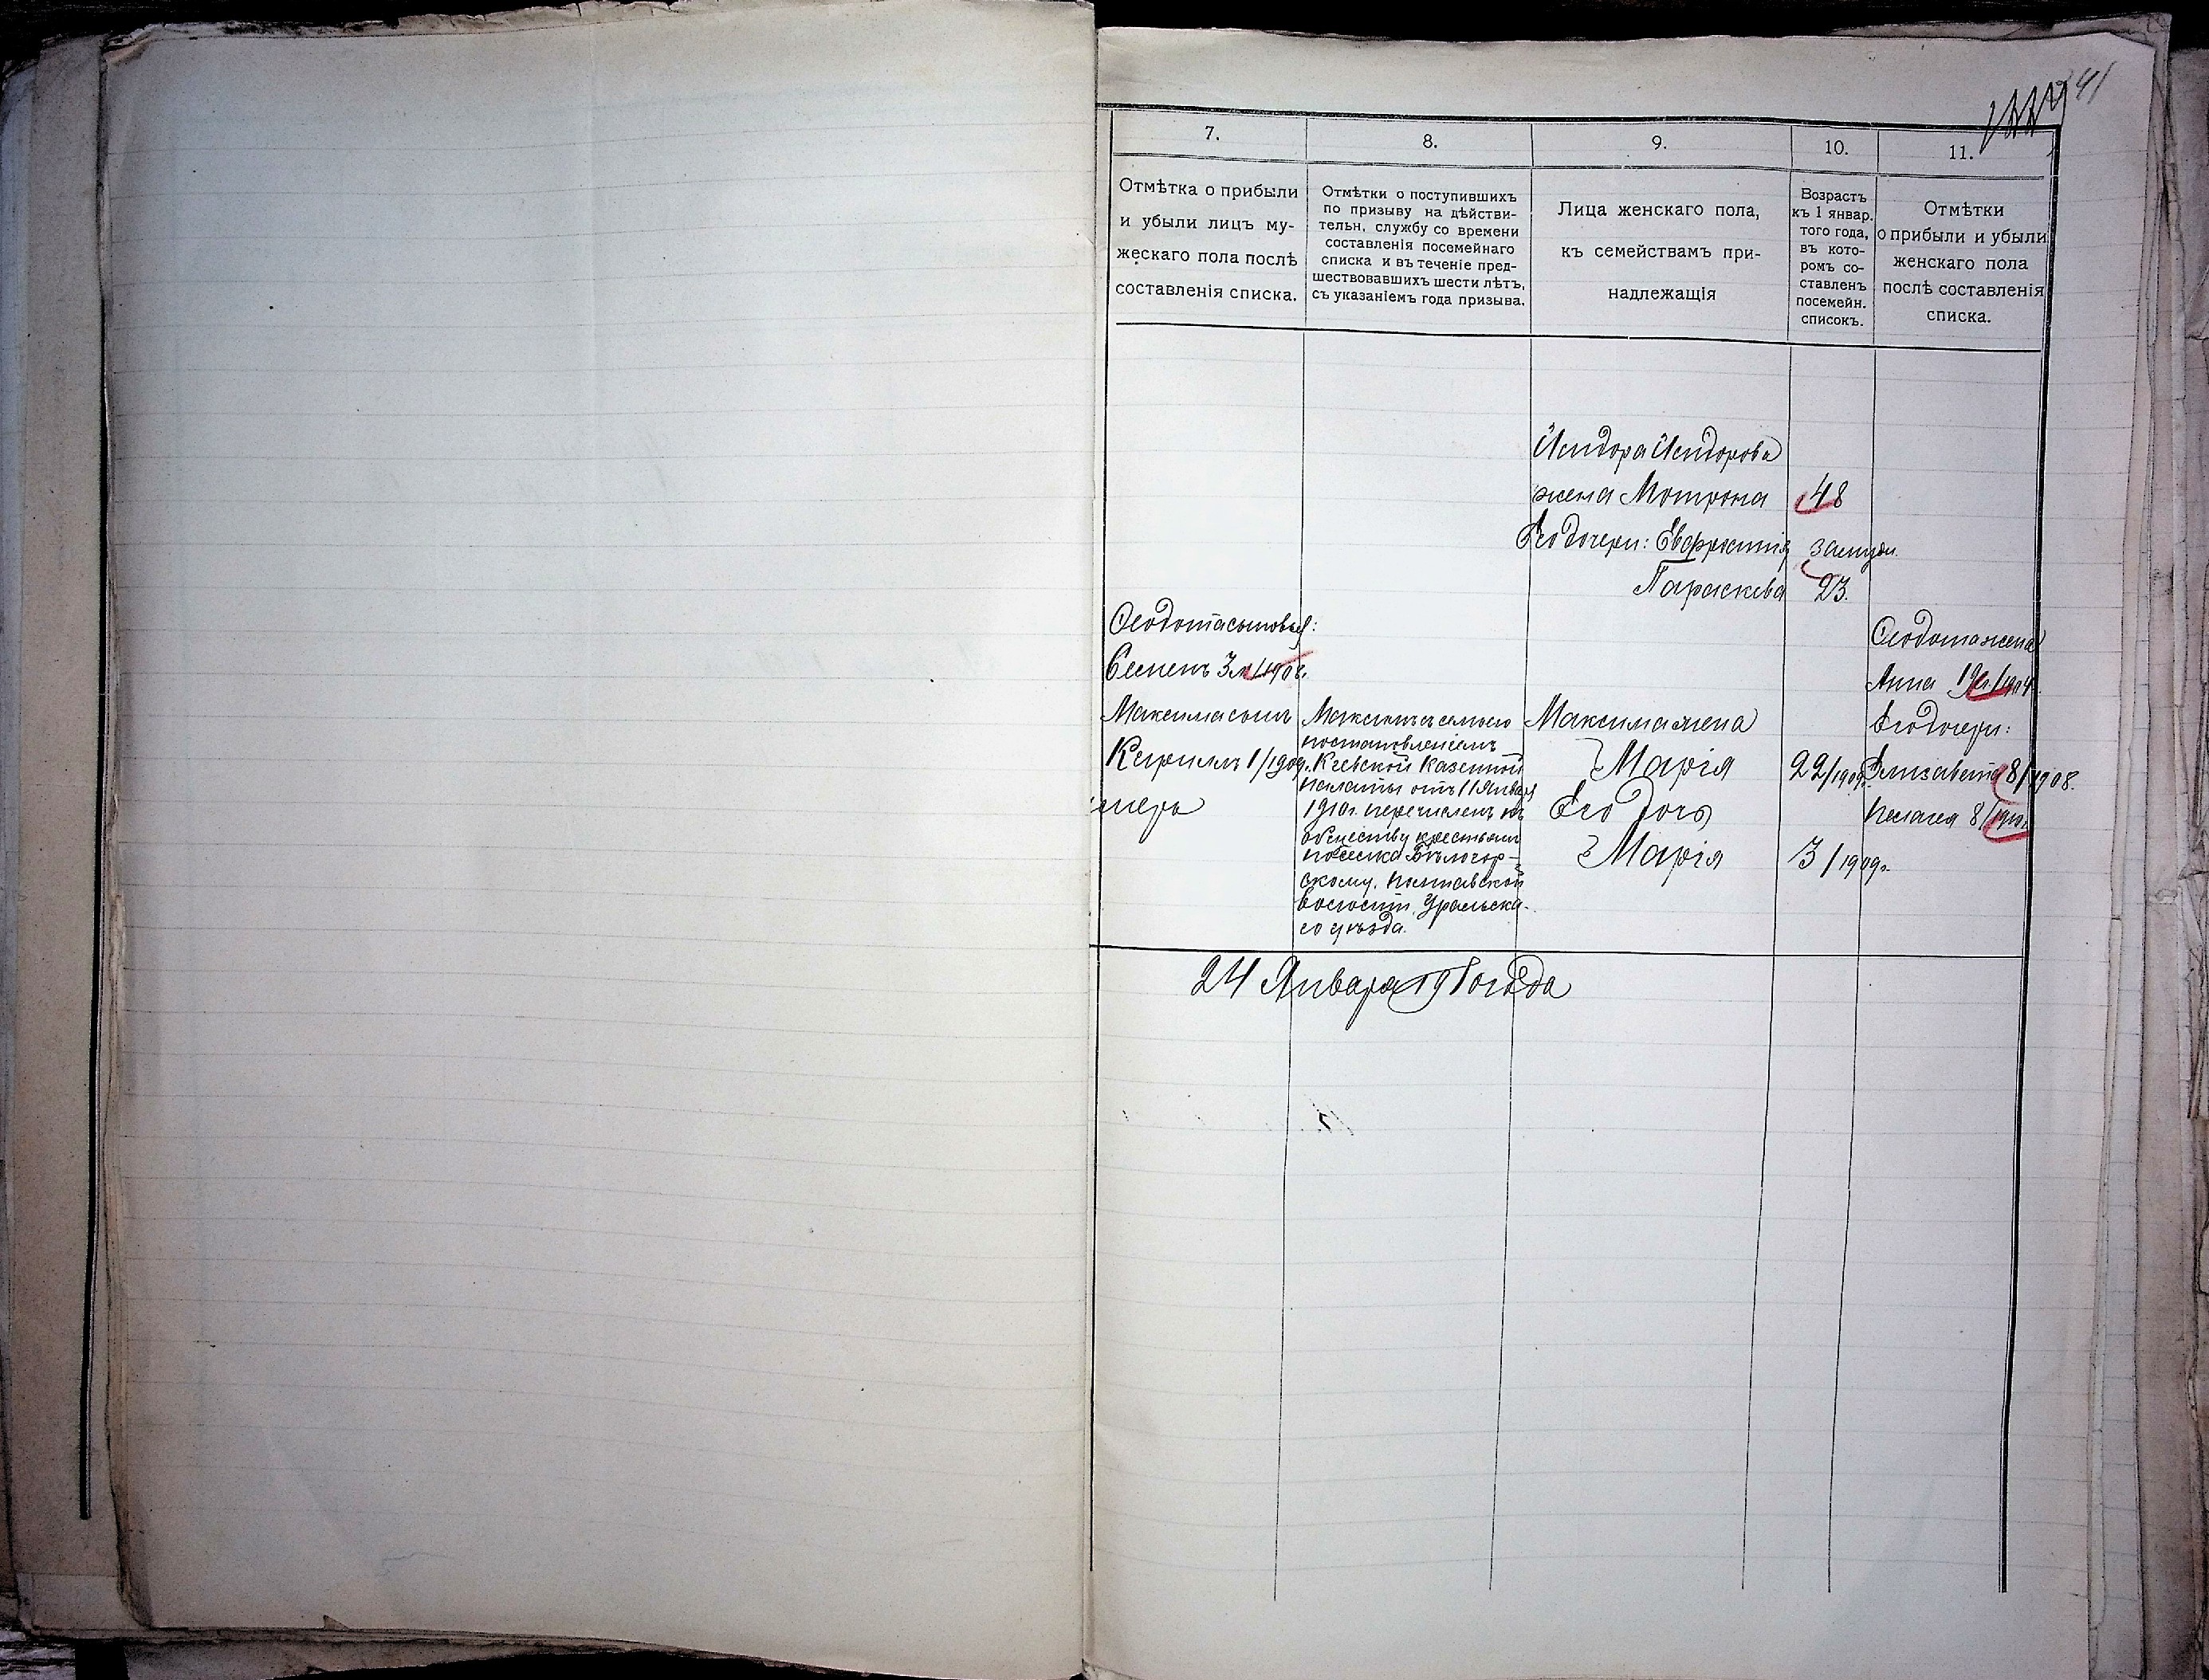 41
7.
Отмѣтка о прибыли
и убыли лицъ му-
жескаго пола послѣ
составленія списка.
8.
Отмѣтки о поступившихъ
по призыву на дѣйстви-
тельн. службу со времени
составленія посемейнаго
списка и въ теченіе пред-
шествовавшихъ шести лѣтъ,
съ указаніемъ года призыва.
9.
Лица женскаго пола,
къ семействамъ при-
надлежащія
10.
Возрастъ
къ 1 январ.
того года,
въ кото-
ромъ со-
ставленъ
посемейн.
списокъ.
11.
Отмѣтки
о прибыли и убыли
женскаго пола
послѣ составленія
списка.
Исидора Исидорова
жена Мотрона 48
Его дочери: Евфросинія замуж.
Параскева 23.
Ѳеодота сыновья:
Семенъ 3 л/1908.
Максима сынъ
Кириллъ 1/1909.
умеръ
Максимъ съ семьею
постановленіемъ
Кіевской Казенной
палаты отъ 11 Января
1910 г. перечисленъ къ
обществу крестьянъ
поселка Бѣлогор-
скому, Полтавской
волости, Уральска-
го уѣзда.
Максима жена
Марія 22/1909.
Его дочь
Марія 3/1909г.
Ѳеодота жена
Анна 19л./1904.
Его дочери:
Елизавета 8/1908.
Пелагея 8/1910.
24 Января 1910 года